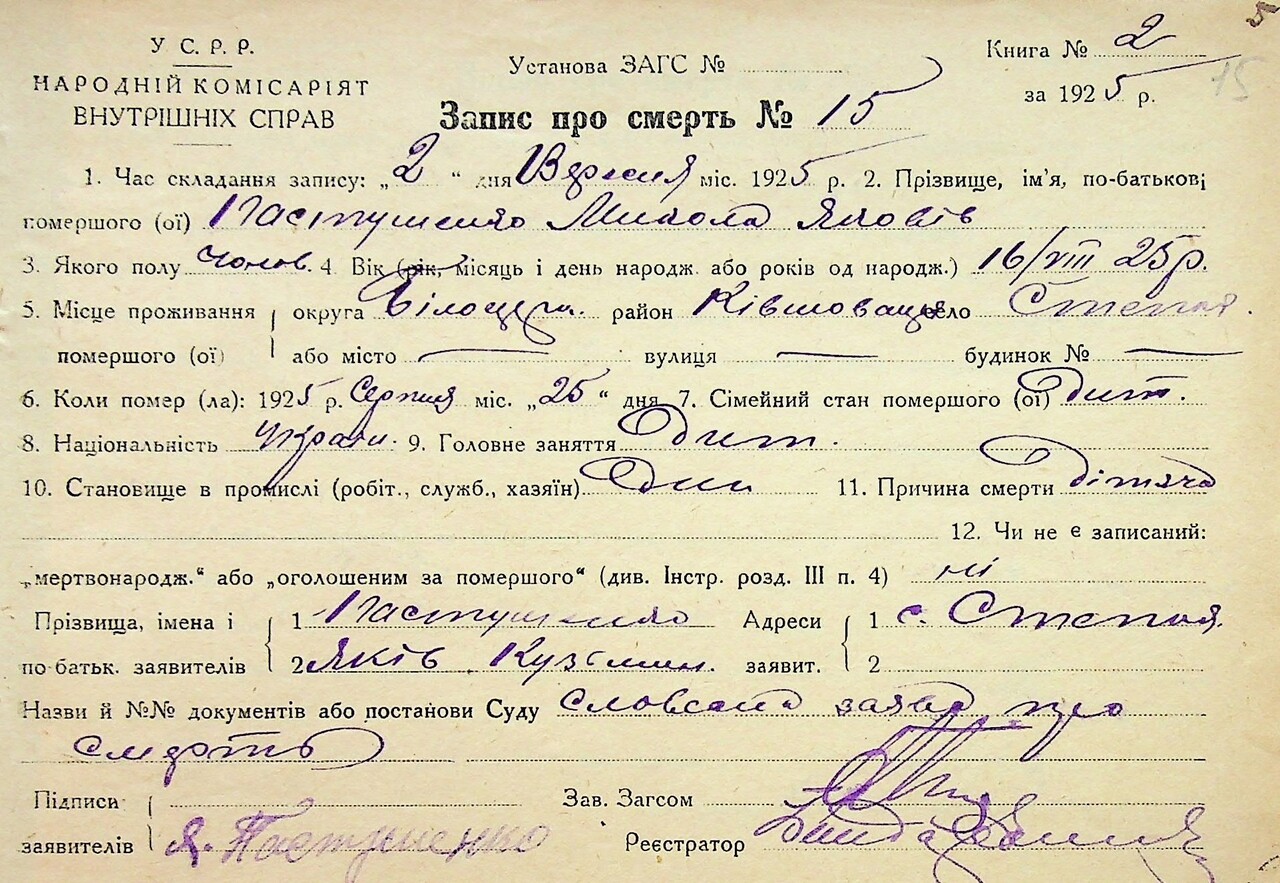 У С. Р. Р.
НАРОДНІЙ КОМІСАРІЯТ
ВНУТРІШНІХ СПРАВ
Установа ЗАГС №
Запис про смерть № 15
Книга № 2
за 1925 р.
15
1. Час складання запису: „2“ дня Вересня міс. 1925 р. 2. Прізвище, ім'я, по-батькові
помершого (ої) Пастушенко Микола Яковів
3. Якого полу чолов. 4 Вік (рік, місяць і день народж. або років од народж.) 16/VIII 25 р.
5. Місце проживання округа Білоцерк. район Ківшовацьк село Степок.
помершого (ої) або місто — вулиця — будинок № —
6. Коли помер (ла): 1925 р. Серпня міс. „25“ дня 7. Сімейний стан помершого (ої) Дит.
8. Національність Україн. 9. Головне заняття Дит.
10. Становище в промислі (робіт., служб., хазяїн) 11. Причина смерти Дітяча
12. Чи не є записаний:
„мертвонародж.“ або „оголошеним за помершого“ (див. Інстр. розд. III п. 4) ні
Прізвища, імена і 1 Пастушенко Адреси 1 с. Степок.
по батьк. заявителів 2 Яків Кузьмин. заявит. 2
Назви й №№ документів або постанови Суду словесна заява про
смерть
Підписи Зав. Загсом
заявителів Я. Пастушенко Реєстратор